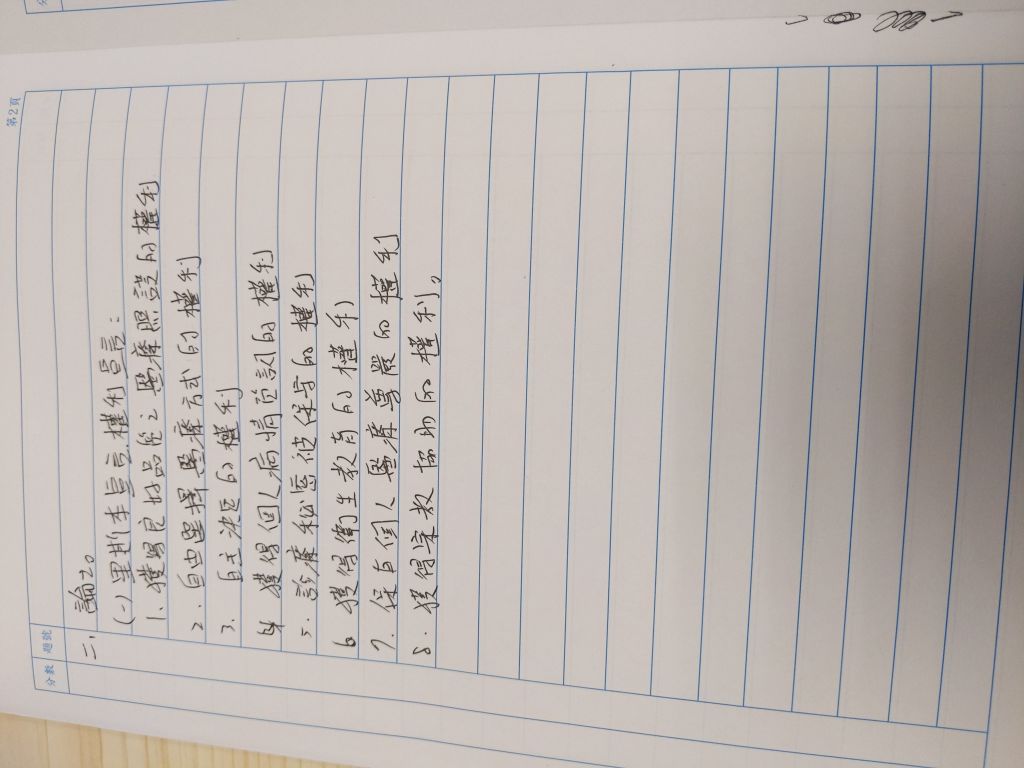 第2頁
分數 題號
二、 論20
(一) 里斯本宣言權利宣言：
1. 獲得良好品質之醫療照護的權利
2. 自由選擇醫療方式的權利
3. 自主決定的權利
4 獲得個人病情資訊的權利
5. 診療秘密被保守的權利
6 獲得衛生教育的權利
7. 保有個人醫療尊嚴的權利
8. 獲得宗教協助的權利。